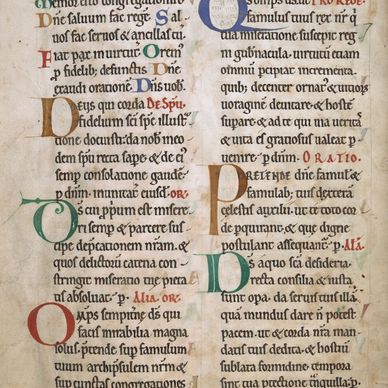 Memor esto congregationis
Dn̄e saluum fac regē. Sal
uos fac seruos & ancillas tu
Fiat pax in uirtut. Orem̄
p̱ fidelib; defunctis. Dn̄e
exaudi orationē. Dn̄s uob.
Deus qui corda De Spu.
fidelium sc̄i sp̄c illust
tione docuisti. da nob in eo
dem sp̄u recta sapē & de ei'
semp̱ consolatione gaudē
p̱ dn̄m. in unitat̄ eiusd̄. or.
Ds cui pp̱um est misere
ri semp̱ & parcere sus
cipe dep̄cationem nr̄am. &
quos delictorū catena con
stringit miseratio tue pieta
tis absoluat. p̱. Alia. or.
Omps sempitne ds qui
facis mirabilia magna
solus. p̄tende sup̱ famulum
tuum archip̄sulem nr̄m &
sup̱ cunctas congregationes
Pro rege.
famulus tuus rex nr̄ q
tua miseratione suscepit reg
ni gubnacula. uirtutū etiam
omniū pcipiat incrementa.
quib; decenter ornat' & uitiorū
uoragine deuitare. & hostē
supare. & ad te qui uia ueritas
& uita es gratiosus ualeat p
uenire. p̱ dn̄m. Oratio.
Pretende dn̄e famul' &
famulab; tuis dexterā
celestis auxilii. ut te toto cor
de pquirant. & que digne
postulant assequant. p̱. Alā.
Ds a quo sc̄a desideria
recta consilia & iusta
sunt opa. da seruis tuis illā
quā mundus dare n̄ potest
pacem. ut & corda nr̄a man
datis tuis dedita. & hostiū
sublata formidine. tempora
sint tua ptectione tranquilla. p̱.